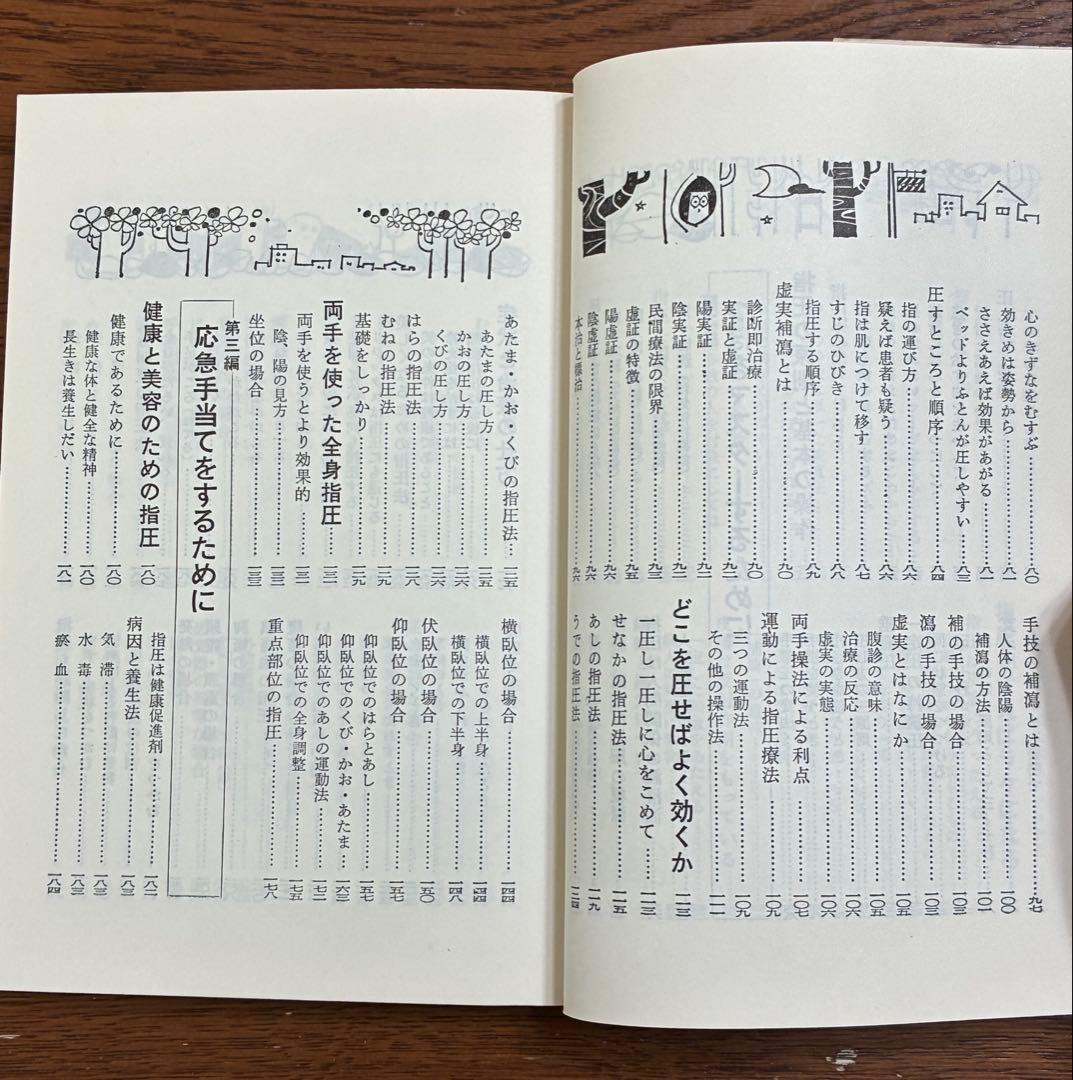 心のきずなをむすぶ…………八〇
効きめは姿勢から…………八一
ささえあえば効果があがる…………八一
ベッドよりふとんが圧しやすい…………八三
圧すところと順序…………八四
指の運び方…………八六
疑えば患者も疑う…………八六
指は肌につけて移す…………八七
すじのひびき…………八八
指圧する順序…………八九
虚実補瀉とは…………九〇
診断即治療…………九〇
実証と虚証…………九一
陽実証…………九二
陰実証…………九二
民間療法の限界…………九三
虚証の特徴…………九五
陽虚証…………九六
陰虚証…………九六
本治と標治…………九六
手技の補瀉とは…………九七
人体の陰陽…………一〇〇
補瀉の方法…………一〇一
補の手技の場合…………一〇三
瀉の手技の場合…………一〇三
虚実とはなにか…………一〇五
腹診の意味…………一〇五
治療の反応…………一〇六
虚実の実態…………一〇六
両手操法による利点…………一〇七
運動による指圧療法…………一〇九
三つの運動法…………一〇九
その他の操作法…………一一一
どこを圧せばよく効くか…………一一三
一圧し一圧しに心をこめて…………一一三
せなかの指圧法…………一一五
あしの指圧法…………一一九
うでの指圧法…………一二四
あたま・かお・くびの指圧法…………一二五
あたまの圧し方…………一二五
かおの圧し方…………一二六
くびの圧し方…………一二六
はらの指圧法…………一二八
むねの指圧法…………一二九
基礎をしっかり…………一二九
両手を使った全身指圧…………一三一
両手を使うとより効果的…………一三一
陰、陽の見方…………一三二
坐位の場合…………一三三
横臥位の場合…………一四四
横臥位での上半身…………一四四
横臥位での下半身…………一四八
伏臥位の場合…………一五〇
仰臥位の場合…………一五七
仰臥位でのはらとあし…………一五七
仰臥位でのくび・かお・あたま…………一六三
仰臥位でのあしの運動法…………一七二
仰臥位での全身調整…………一七五
重点部位の指圧…………一七八
第三編
応急手当てをするために
健康と美容のための指圧…………一八〇
健康であるために…………一八〇
健康な体と健全な精神…………一八〇
長生きは養生しだい…………一八一
指圧は健康促進剤…………一八二
病因と養生法…………一八三
気 滞…………一八三
水 毒…………一八三
瘀 血…………一八四